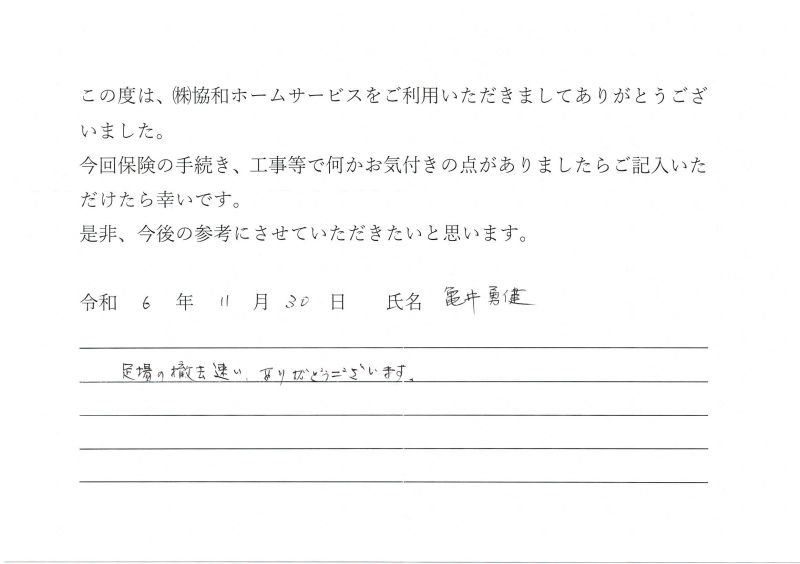 この度は、㈱協和ホームサービスをご利用いただきましてありがとうござ
いました。
今回保険の手続き、工事等で何かお気付きの点がありましたらご記入いた
だけたら幸いです。
是非、今後の参考にさせていただきたいと思います。
令和 6 年 11 月 30 日 氏名 亀井勇健
足場の撤去速い、ありがとうございます。